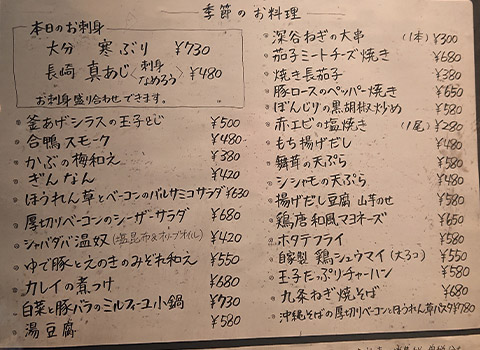 季節のお料理
本日のお刺身
大分 寒ぶり ¥730
長崎 真あじ〈刺身 なめろう〉 ¥480
お刺身盛り合わせできます。
釜あげシラスの玉子とじ ¥500
合鴨スモーク ¥480
かぶの梅和え ¥380
ぎんなん ¥420
ほうれん草とベーコンのバルサミコサラダ ¥630
厚切りベーコンのシーザーサラダ ¥680
シャバダバ温奴(塩昆布&オリーブオイル) ¥420
ゆで豚とえのきのみぞれ和え ¥550
カレイの煮つけ ¥680
白菜と豚バラのミルフィーユ小鍋 ¥730
湯豆腐 ¥580
深谷ねぎの大串 (1本) ¥300
茄子ミートチーズ焼き ¥680
焼き長茄子 ¥380
豚ロースのペッパー焼き ¥650
ぼんじりの黒胡椒炒め ¥580
赤エビの塩焼き (1尾) ¥280
もち揚げだし ¥480
舞茸の天ぷら ¥580
シシャモの天ぷら ¥480
揚げだし豆腐 山芋のせ ¥580
鶏唐和風マヨネーズ ¥650
ホタテフライ ¥580
自家製 鶏シュウマイ (大3つ) ¥550
玉子たっぷりチャーハン ¥580
九条ねぎ焼そば ¥680
沖縄そばの厚切りベーコンとほうれん草パスタ ¥780